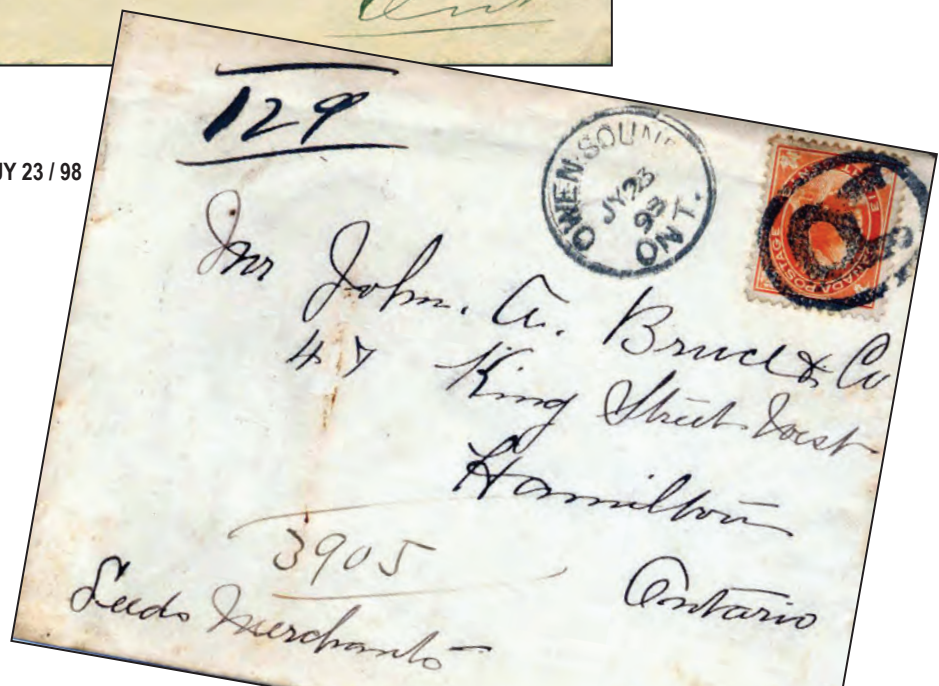 Ont
JY 23 / 98
129
OWEN SOUN
JY 23
98
ONT.
CANADA POSTAGE
Mr John. A. Bruce & Co
47 King Street West
Hamilton
Ontario
3905
Seeds Merchants